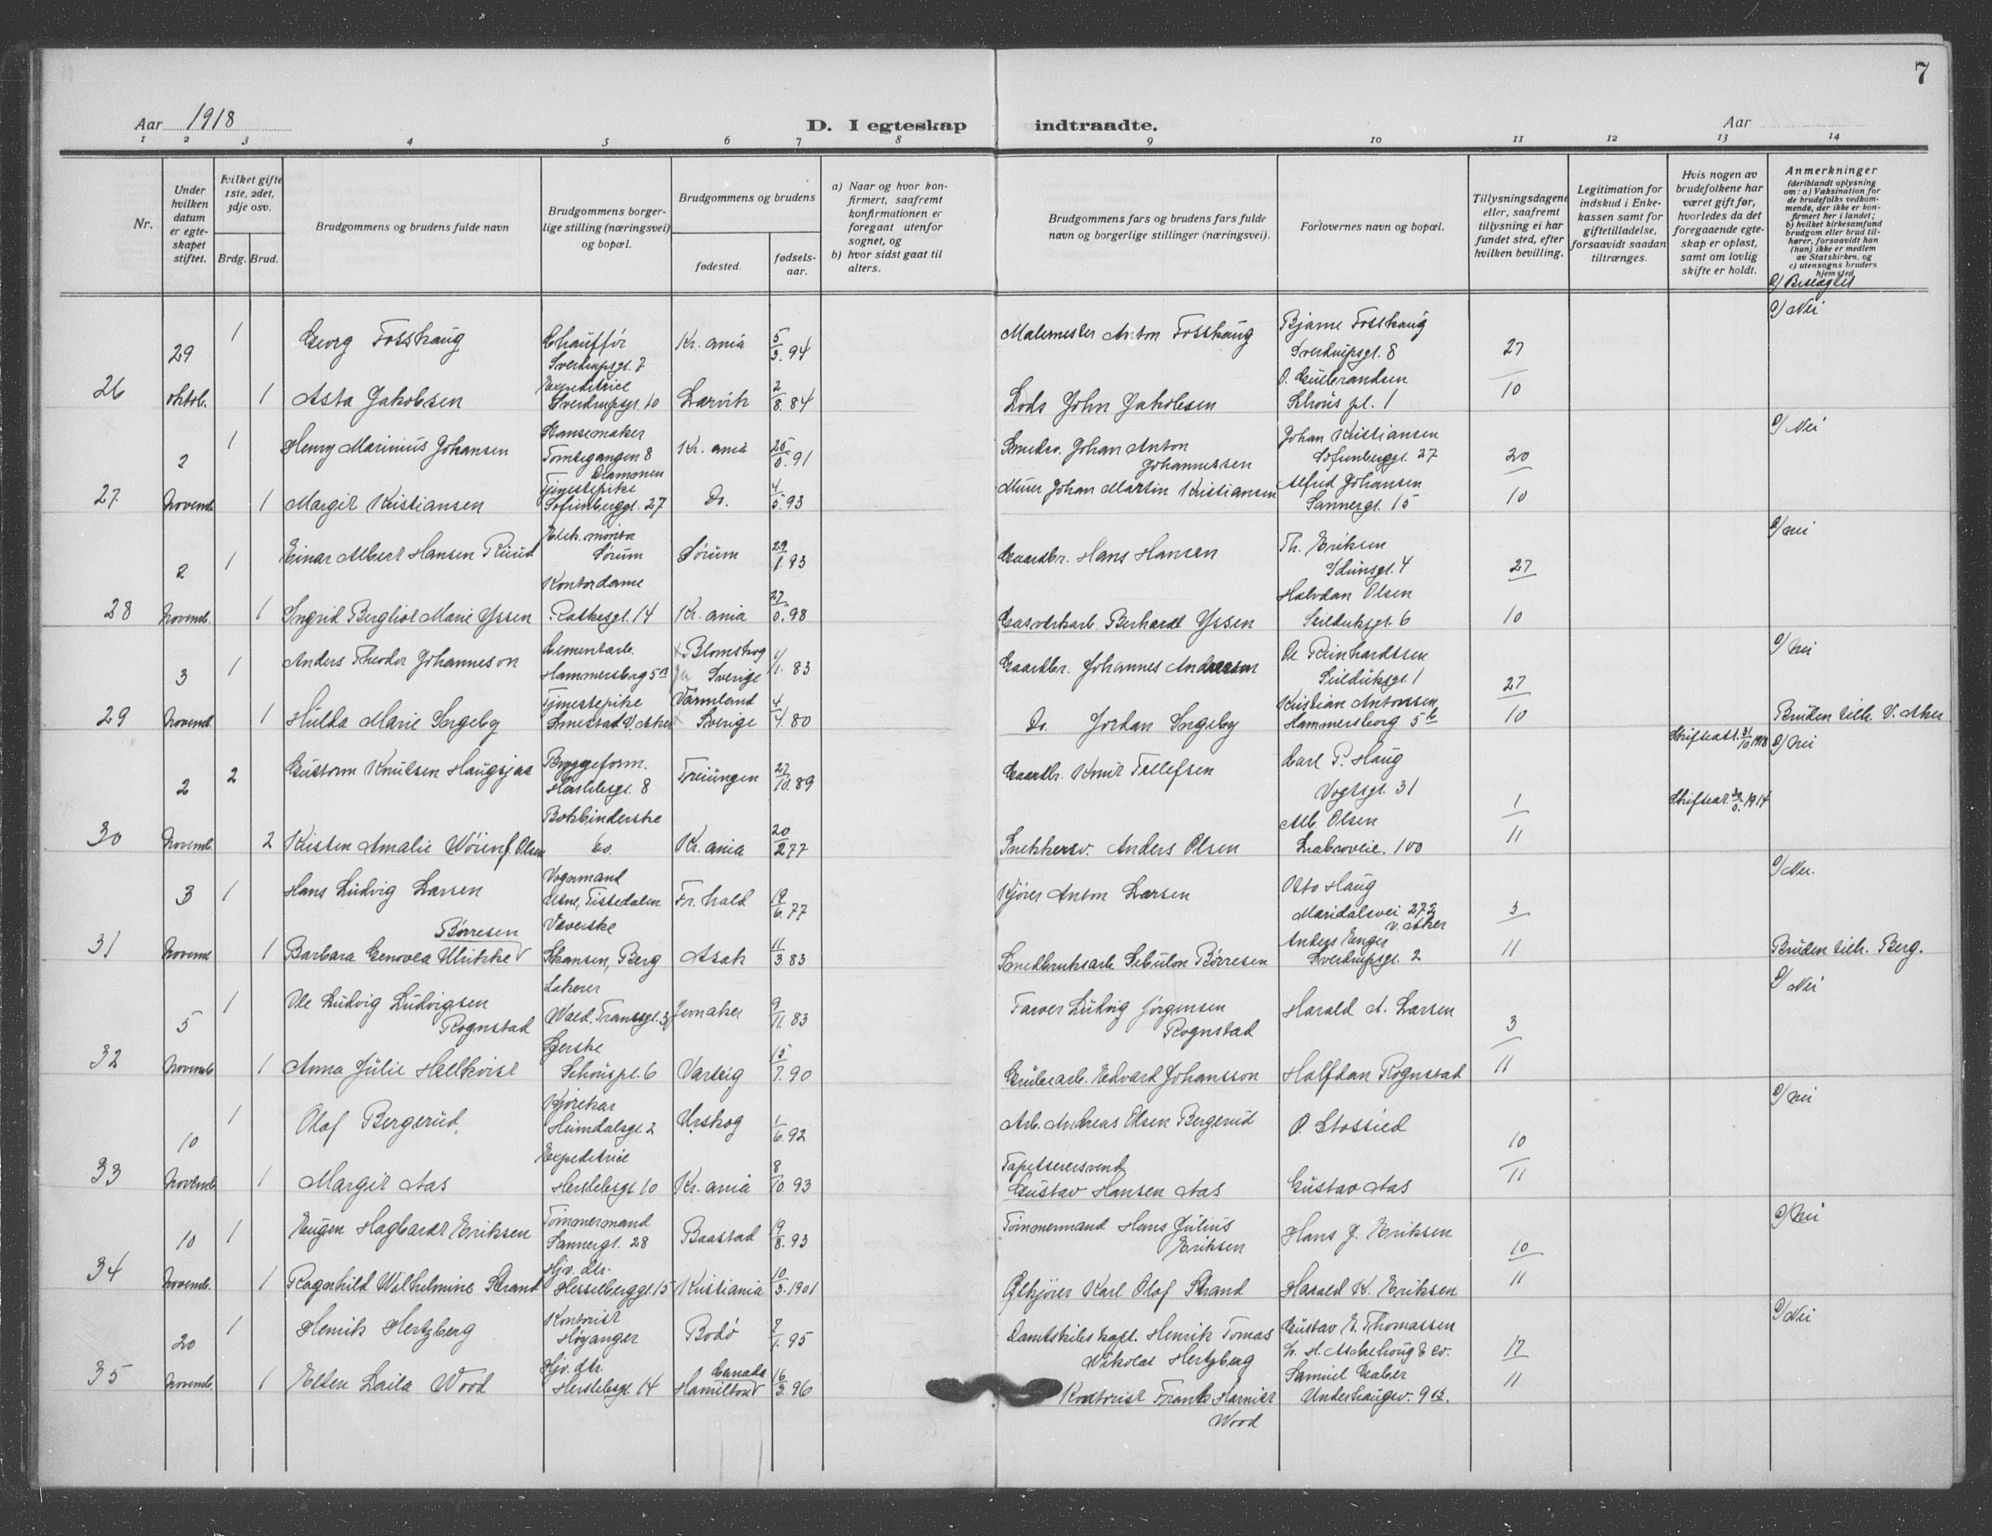 7
Aar 1918
D. I egteskap indtraadte.
Aar
1 2 3 4 5 6 7 8 9 10 11 12 13 14
Nr.
Under hvilken datum er egteskapet stiftet.
Hvilket gifte 1ste, 2det, 3dje osv.
Brdg. Brud.
Brudgommens og brudens fulde navn
Brudgommens borgerlige stilling (næringsvei) og bopæl.
Brudgommens og brudens
fødested.
fødselsaar.
a) Naar og hvor konfirmert, saafremt konfirmationen er foregaat utenfor sognet, og
b) hvor sidst gaat til alters.
Brudgommens fars og brudens fars fulde navn og borgerlige stillinger (næringsvei).
Forlovernes navn og bopæl.
Tillysningsdagene eller, saafremt tillysning ei har fundet sted, efter hvilken bevilling.
Legitimation for indskud i Enkekassen samt for giftetilladelse, forsaavidt saadan tiltrænges.
Hvis nogen av brudefolkene har været gift før, hvorledes da det foregaaende egteskap er opløst, samt om lovlig skifte er holdt.
Anmerkninger
(deriblandt oplysning om: a) Vaksination for de brudefolks vedkommende, der ikke er konfirmert her i landet; b) hvilket kirkesamfund brudgom eller brud tilhører, forsaavidt han (hun) ikke er medlem av Statskirken, og c) utensogns bruders hjemsted.
d) Beslegtet
26 29 oktob. 1 Georg Fosshaug Chauffør Sverdrupsgt. 7 Kr.ania 5/3.94 Malemester Anton Fosshaug Bjarne Fosshaug Sverdrupsgt. 8 27/10 d/ Nei
1 Asta Jakobsen Expeditrice Sverdrupsgt. 10 Larvik 2/8.84 Lods John Jakobsen O. Gulbrandsen Schous pl. 1
27 2 Novemb. 1 Henry Marinius Johansen Stansemaker Tomtegangen 8 Kr.ania 91 Johan Anton Johannessen Johan Kristiansen Sofienberggt. 27 20/10 d/ Nei
1 Margit Kristiansen Tjenestepike Sofienberggt. 27 Do. 4/5.93 Murer Johan Martin Kristiansen Alfred Johansen Sannergt. 15
28 2 Novemb. 1 Einar Albert Hansen Ruud Elek. montør Sørum Sørum 93 Gaardbr. Hans Hansen Th. Eriksen Idunsgt. 4 27/10 d/ Nei
1 Ingrid Bergliot Marie Yssen Kontordame Rathkesgt. 14 Kr.ania 98 Gasverkarb. Berhardt Yssen Halvdan Olsen Seilduksgt. 6
29 3 Novemb. 1 Anders Theodor Johanneson Cementarb. Hammersborg 5 Blomskog Sverige 83 Gaardbr. Johannes Andersson Reinhardtsen Seilduksgt. 1 27/10 d/ Nei
1 Hulda Marie Ingeby Tjenestepike Smestad V. Aker Värmland Sverige 80 Do. Jordan Ingeby Kristian Antonsen Hammersborg 5 Bruden tilh. V. Aker
30 2 Novemb. 2 Gustorm Knutsen Haugsjaa Byggeform. Herslebsgt. 8 Treungen 27/10.89 Gaardbr. Knut Tellefsen Carl P. Haug Vogtsgt. 31 1/11 Skifteat. 31/10 1918 d/ Nei
2 Kristen Amalie Wøien f. Olsen Bokbinderske Do. Kr.ania 20/2 77 Snekkersv. Anders Olsen Alb. Olsen 100 Skifteat. 1914
31 3 Novemb. 1 Hans Ludvig Larsen Vognmand Tistedalen Fr.hald 19/6.77 Kjører Anton Larsen Otto Haug Maridalsvei 272 V. Aker 3/11 d/ Nei
1 Barbara Genovea Ulrikke Børresen Væverske Skansen, Berg Asak 11/3 83 Smedbruksarb. Sebulon Børresen Anders Enger Sverdrupsgt. 2 Bruden tilh. Berg.
32 5 Novemb. 1 Ole Ludvig Ludvigsen Rognstad Lakerer Jevnaker 9/11.83 Farver Ludvig Jørgensen Rognstad Harald A. Larsen 3/11 d/ Nei
1 Anna Julie Hellkvist Syerske Schouspl. 6 Varteig 15/7.90 Edvard Johansson Halfdan Rognstad
33 10 Novemb. 1 Olaf Bergerud Kjørekar Heimdalsgt. 2 Urskog 1/6.92 Arb. Andreas Olsen Bergerud 10/11 d/ Nei
1 Margit Aas Expeditrice Herslebsgt. 10 Kr.ania 8/10 93 Tapetserersvend Gustav Hansen Aas Gustav Aas
34 10 Novemb. 1 Eugen Hagbardt Eriksen Tømmermand Sannergt. 28 Baastad 19/8.93 Tømmermand Hans Julius Eriksen Hans J. Eriksen 10/11 d/ Nei
1 Ragnhild Wilhelmine Strand Hjv. dtr. Hesselberggt. 15 Kristiania 10/3.1901 Ølkjører Karl Olaf Strand Harald K. Eriksen
35 20 Novemb. 1 Henrik Hertzberg Kontorist Høyanger Bodø 7/1.95 Dampskibskapt. Henrik Tomas Nikolai Hertzberg Gustav E. Thomassen H. Aschehoug & Co. 17/11 d/ Nei
1 Ellen Laila Wood Hjv. dtr. Herslebsgt. 14 Canada Hamilton 16/3.96 Kontorist Frank Wood Samuel Underhaugsv. 9